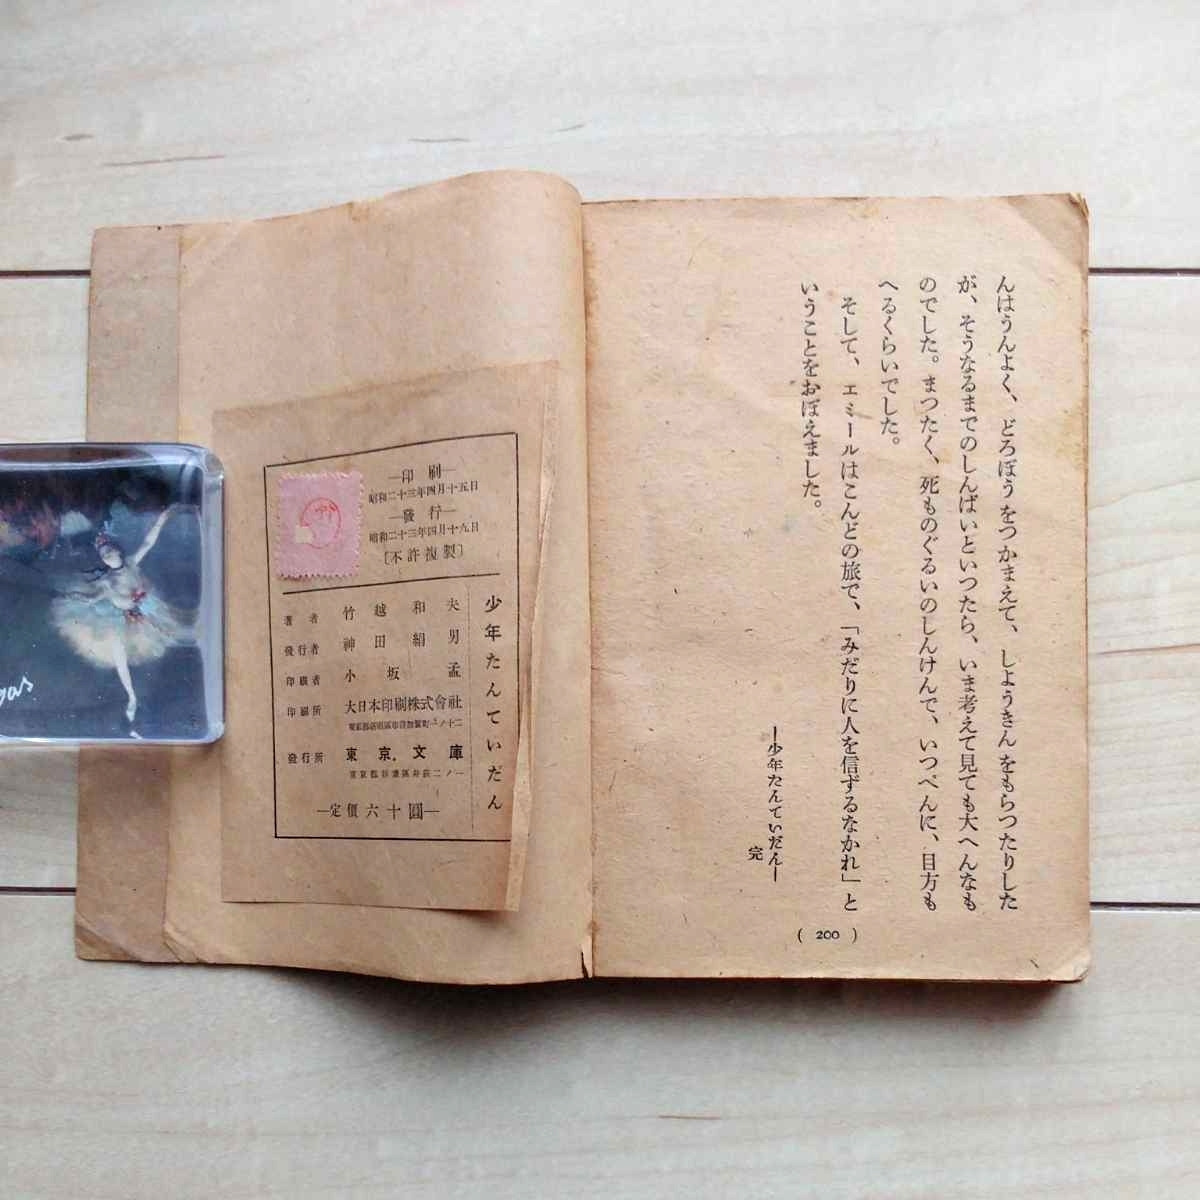 んはうんよく、どろぼうをつかまえて、しようきんをもらつたりした
が、そうなるまでのしんぱいといつたら、いま考えて見ても大へんなも
のでした。まつたく、死ものぐるいのしんけんで、いつぺんに、目方も
へるくらいでした。
そして、エミールはこんどの旅で、「みだりに人を信ずるなかれ」と
いうことをおぼえました。
―少年たんていだん―
完
( 200 )
―印刷―
昭和二十三年四月十五日
―發行―
昭和二十三年四月十九日
〔不許複製〕
少年たんていだん
著者 竹越和夫
發行者 神田絹男
印刷者 小坂孟
印刷所 大日本印刷株式會社
發行所 東京文庫
―定價六十圓―
gas